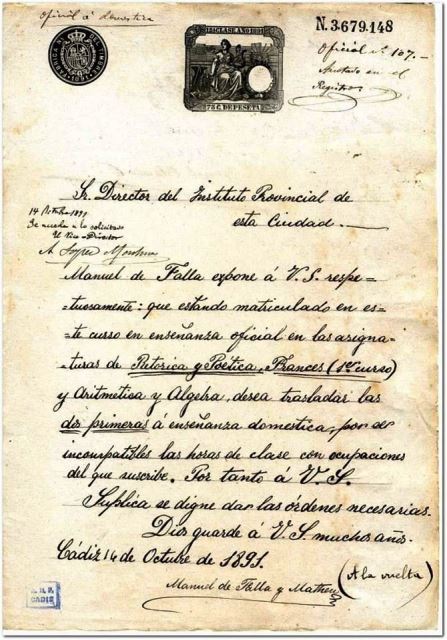 Oficial á domestica
TIMBRE DEL ESTADO
15ª CLASE AÑO 1891
75 C. DE PESETA
N. 3.679.148
Oficial nº 107.-
Anotado en el
Registro
Sr. Director del Instituto Provincial de
esta Ciudad.
14 Octubre 1891
Se accede a lo solicitado
El Vice-Director
Manuel de Falla expone á V. S. respe-
-tuosamente: que estando matriculado en es-
-te curso en enseñanza oficial en las asigna-
-turas de Retorica y Poética, Frances (1er curso)
y Aritmetica y Algebra, desea trasladar las
dos primeras á enseñanza domestica, por ser
incompatibles las horas de clase con ocupaciones
del que suscribe. Por tanto á V. S.
Suplica se digne dar las órdenes necesarias.
Dios guarde á V. S. muchos años.
Cádiz 14 de Octubre de 1891.
(A la vuelta)
Manuel de Falla y Matheu
CADIZ